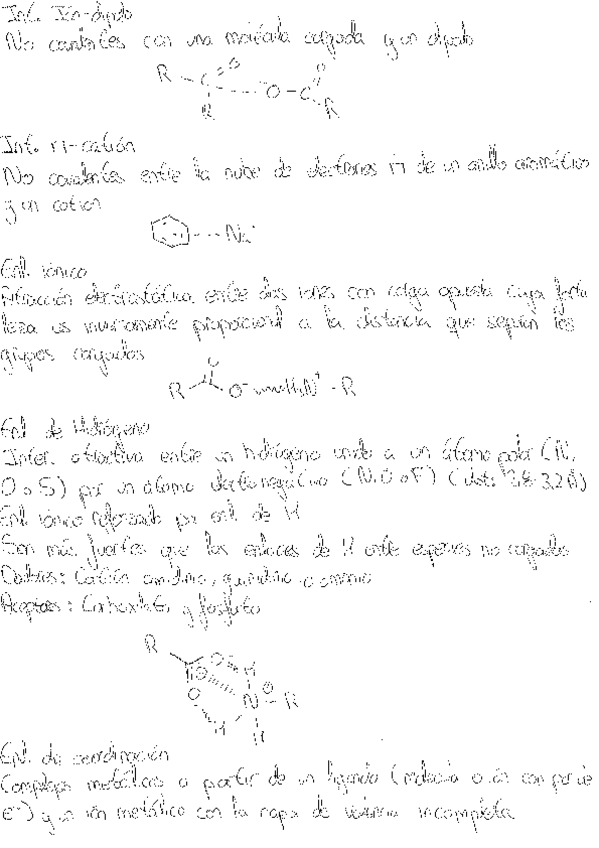 Int. Ión-dipolo
No covalentes con una molécula cargada y un dipolo
R C O O C O R
R
Int. π-catión
No covalentes entre la nube de electrones π de un anillo aromático
y un cation
Na⁺
Enl. iónico
Atracción electrostática entre dos iones con carga opuesta cuya forta
leza es inversamente proporcional a la distancia que separan los
grupos cargados
R O O⁻ H₃N⁺ - R
Enl. de Hidrógeno
Inter. atractiva entre un hidrógeno unido a un átomo polar (N,
O o S) por un átomo electronegativo (N, O o F) (dist: 2,8-3,2 Å)
Enl. iónico reforzado por enl. de H
Son más fuertes que los enlaces de H entre especies no cargadas
Dadores: Catión amidinio, guanidinio o amonio
Aceptores: Carboxilato y fosfato
R O H
O N - R
H H
Enl. de coordinación
Complejos metálicos a partir de un ligando (molécula o ión con par de
e⁻) y un ión metálico con la capa de valencia incompleta